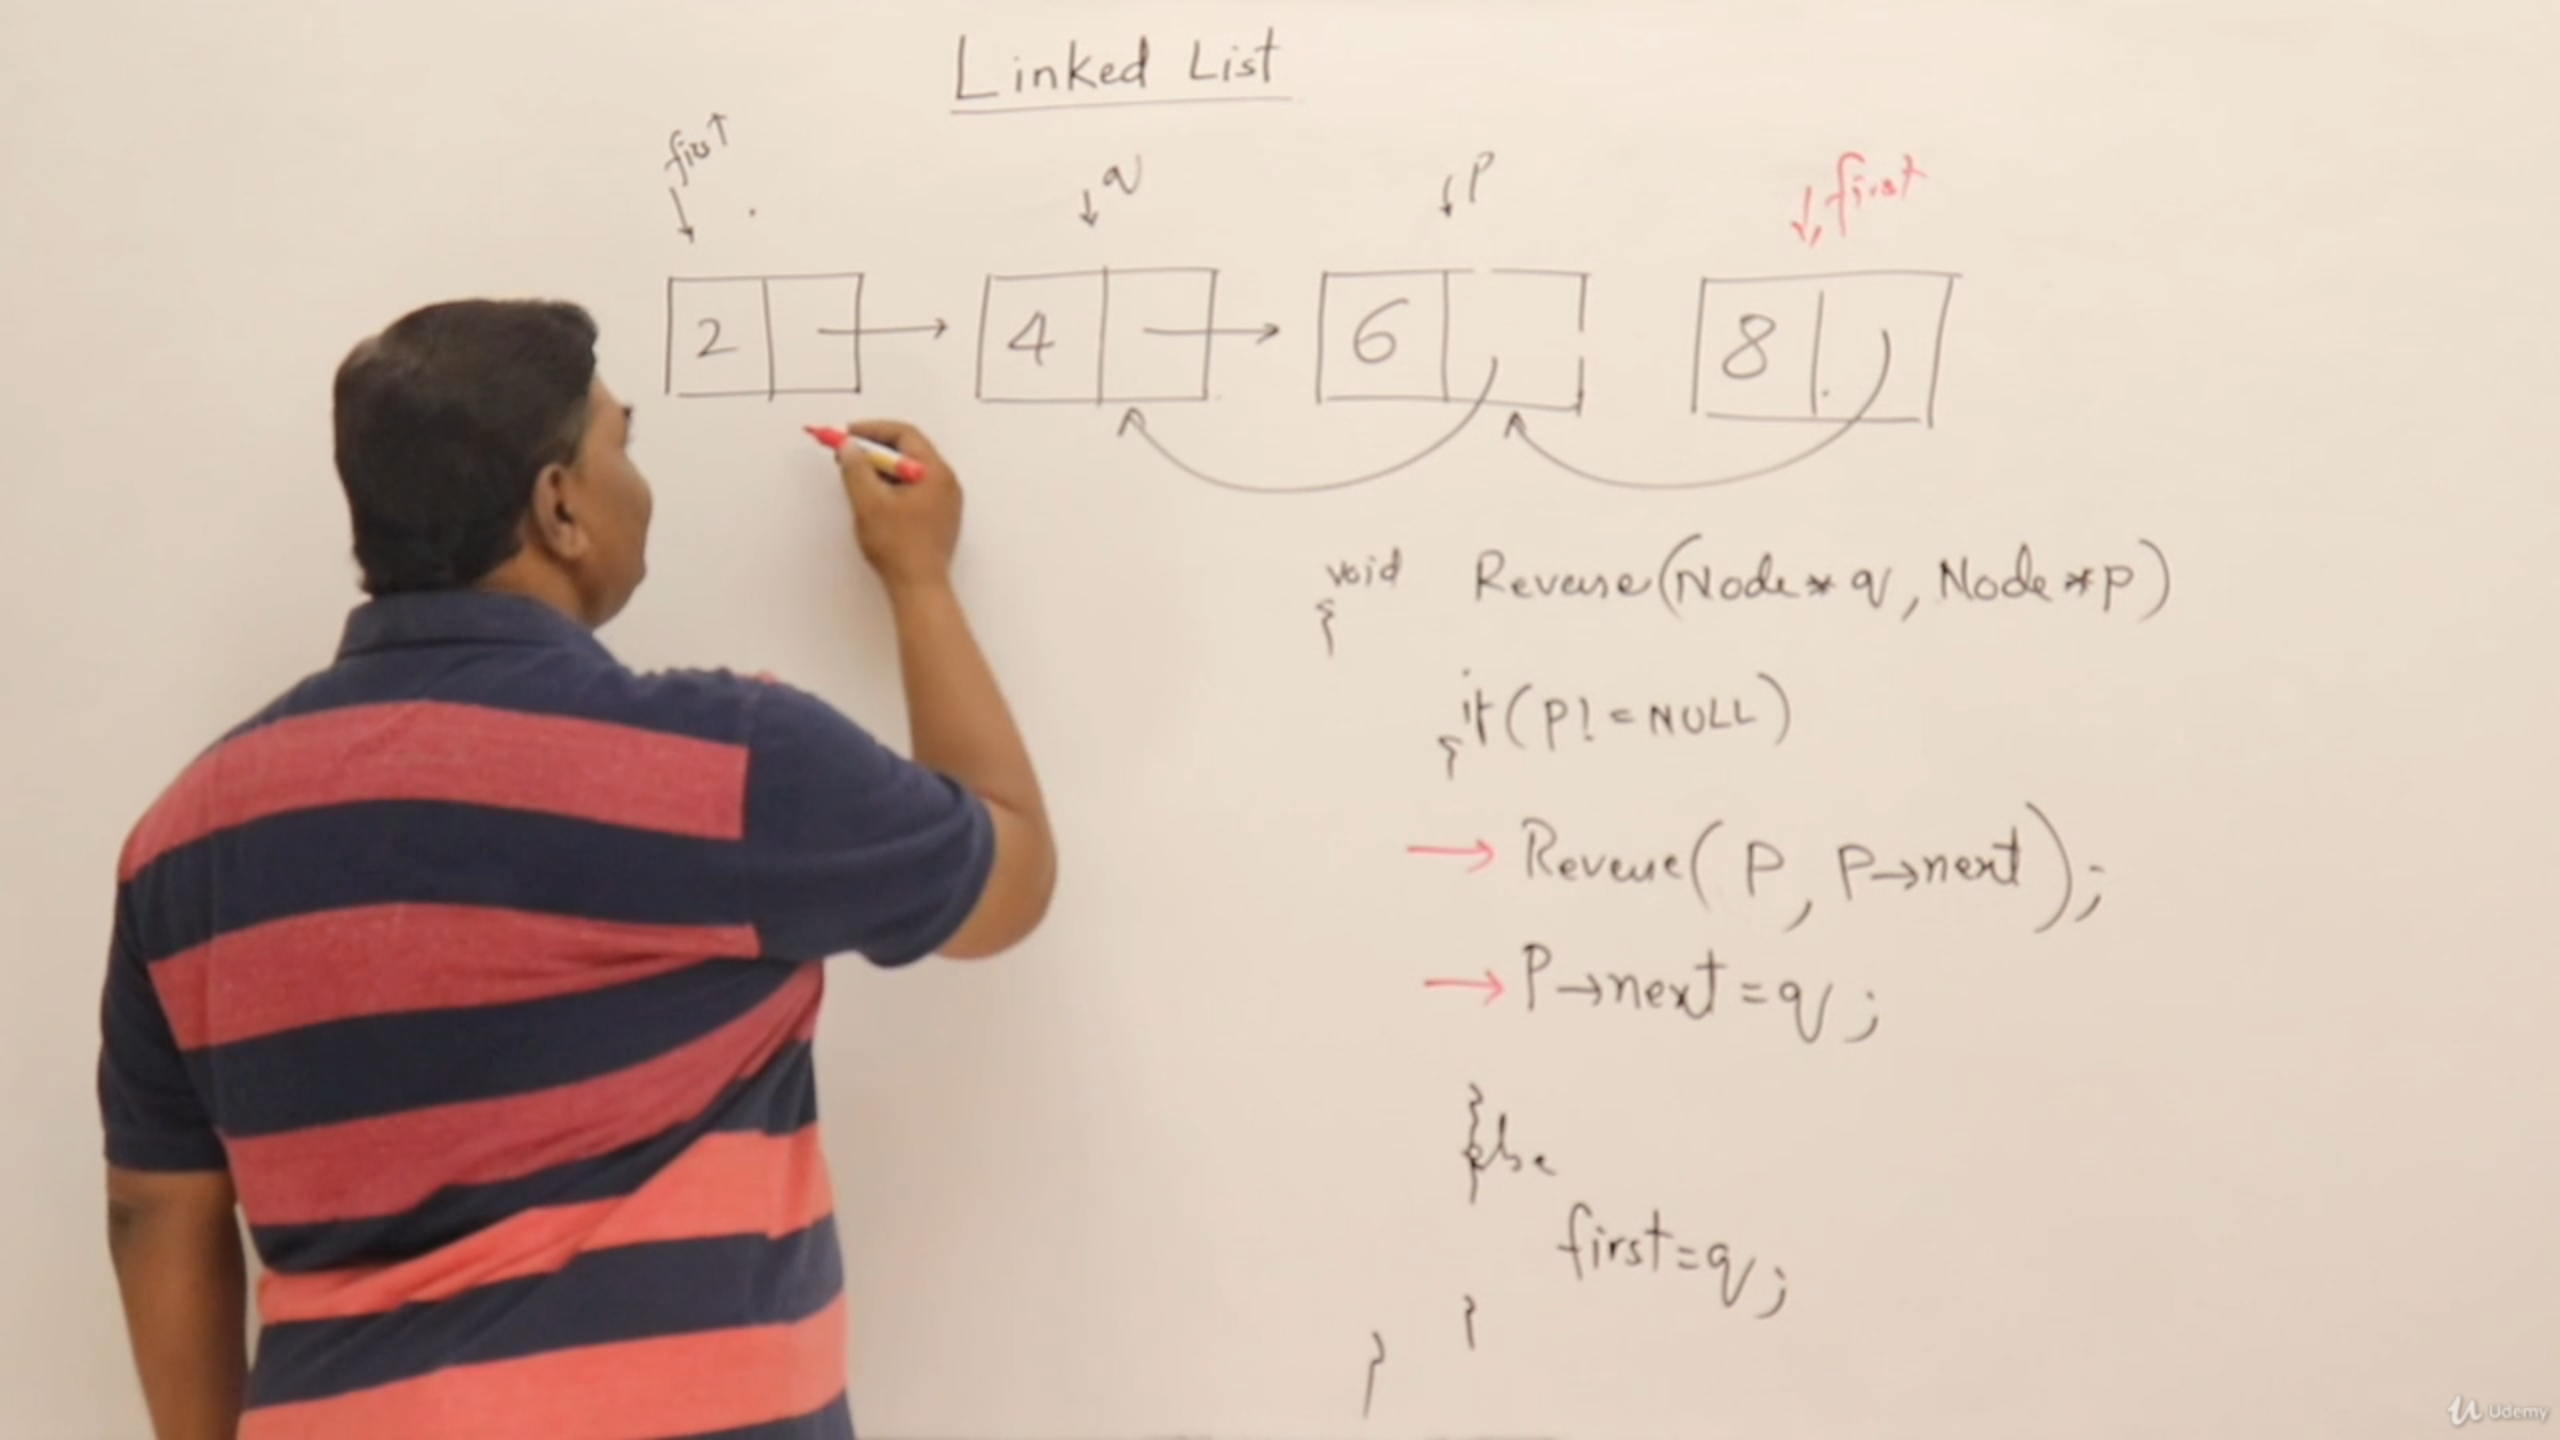 Linked List
first
q
p
first
2 4 6 8
void Reverse(Node* q, Node *p)
{
if(P! = NULL)
{
→ Reverse( P, P→next);
→ P→next = q;
}
else
{
first = q;
}
}
Udemy